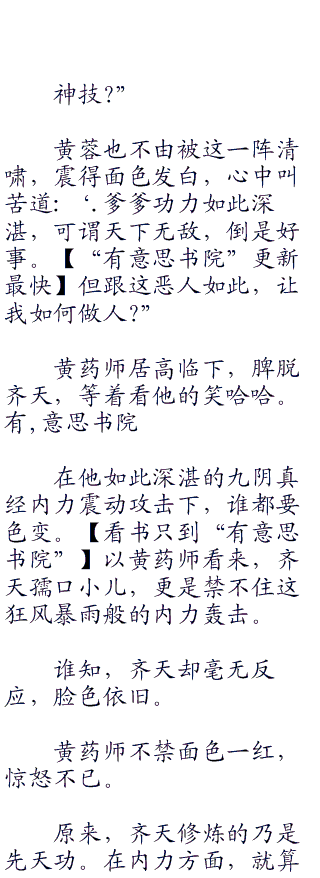 神技?”
黄蓉也不由被这一阵清
啸，震得面色发白，心中叫
苦道：‘.爹爹功力如此深
湛，可谓天下无敌，倒是好
事。【“有意思书院”更新
最快】但跟这恶人如此，让
我如何做人?”
黄药师居高临下，脾脱
齐天，等着看他的笑哈哈。
有,意思书院
在他如此深湛的九阴真
经内力震动攻击下，谁都要
色变。【看书只到“有意思
书院”】以黄药师看来，齐
天孺口小儿，更是禁不住这
狂风暴雨般的内力轰击。
谁知，齐天却毫无反
应，脸色依旧。
黄药师不禁面色一红，
惊怒不已。
原来，齐天修炼的乃是
先天功。在内力方面，就算